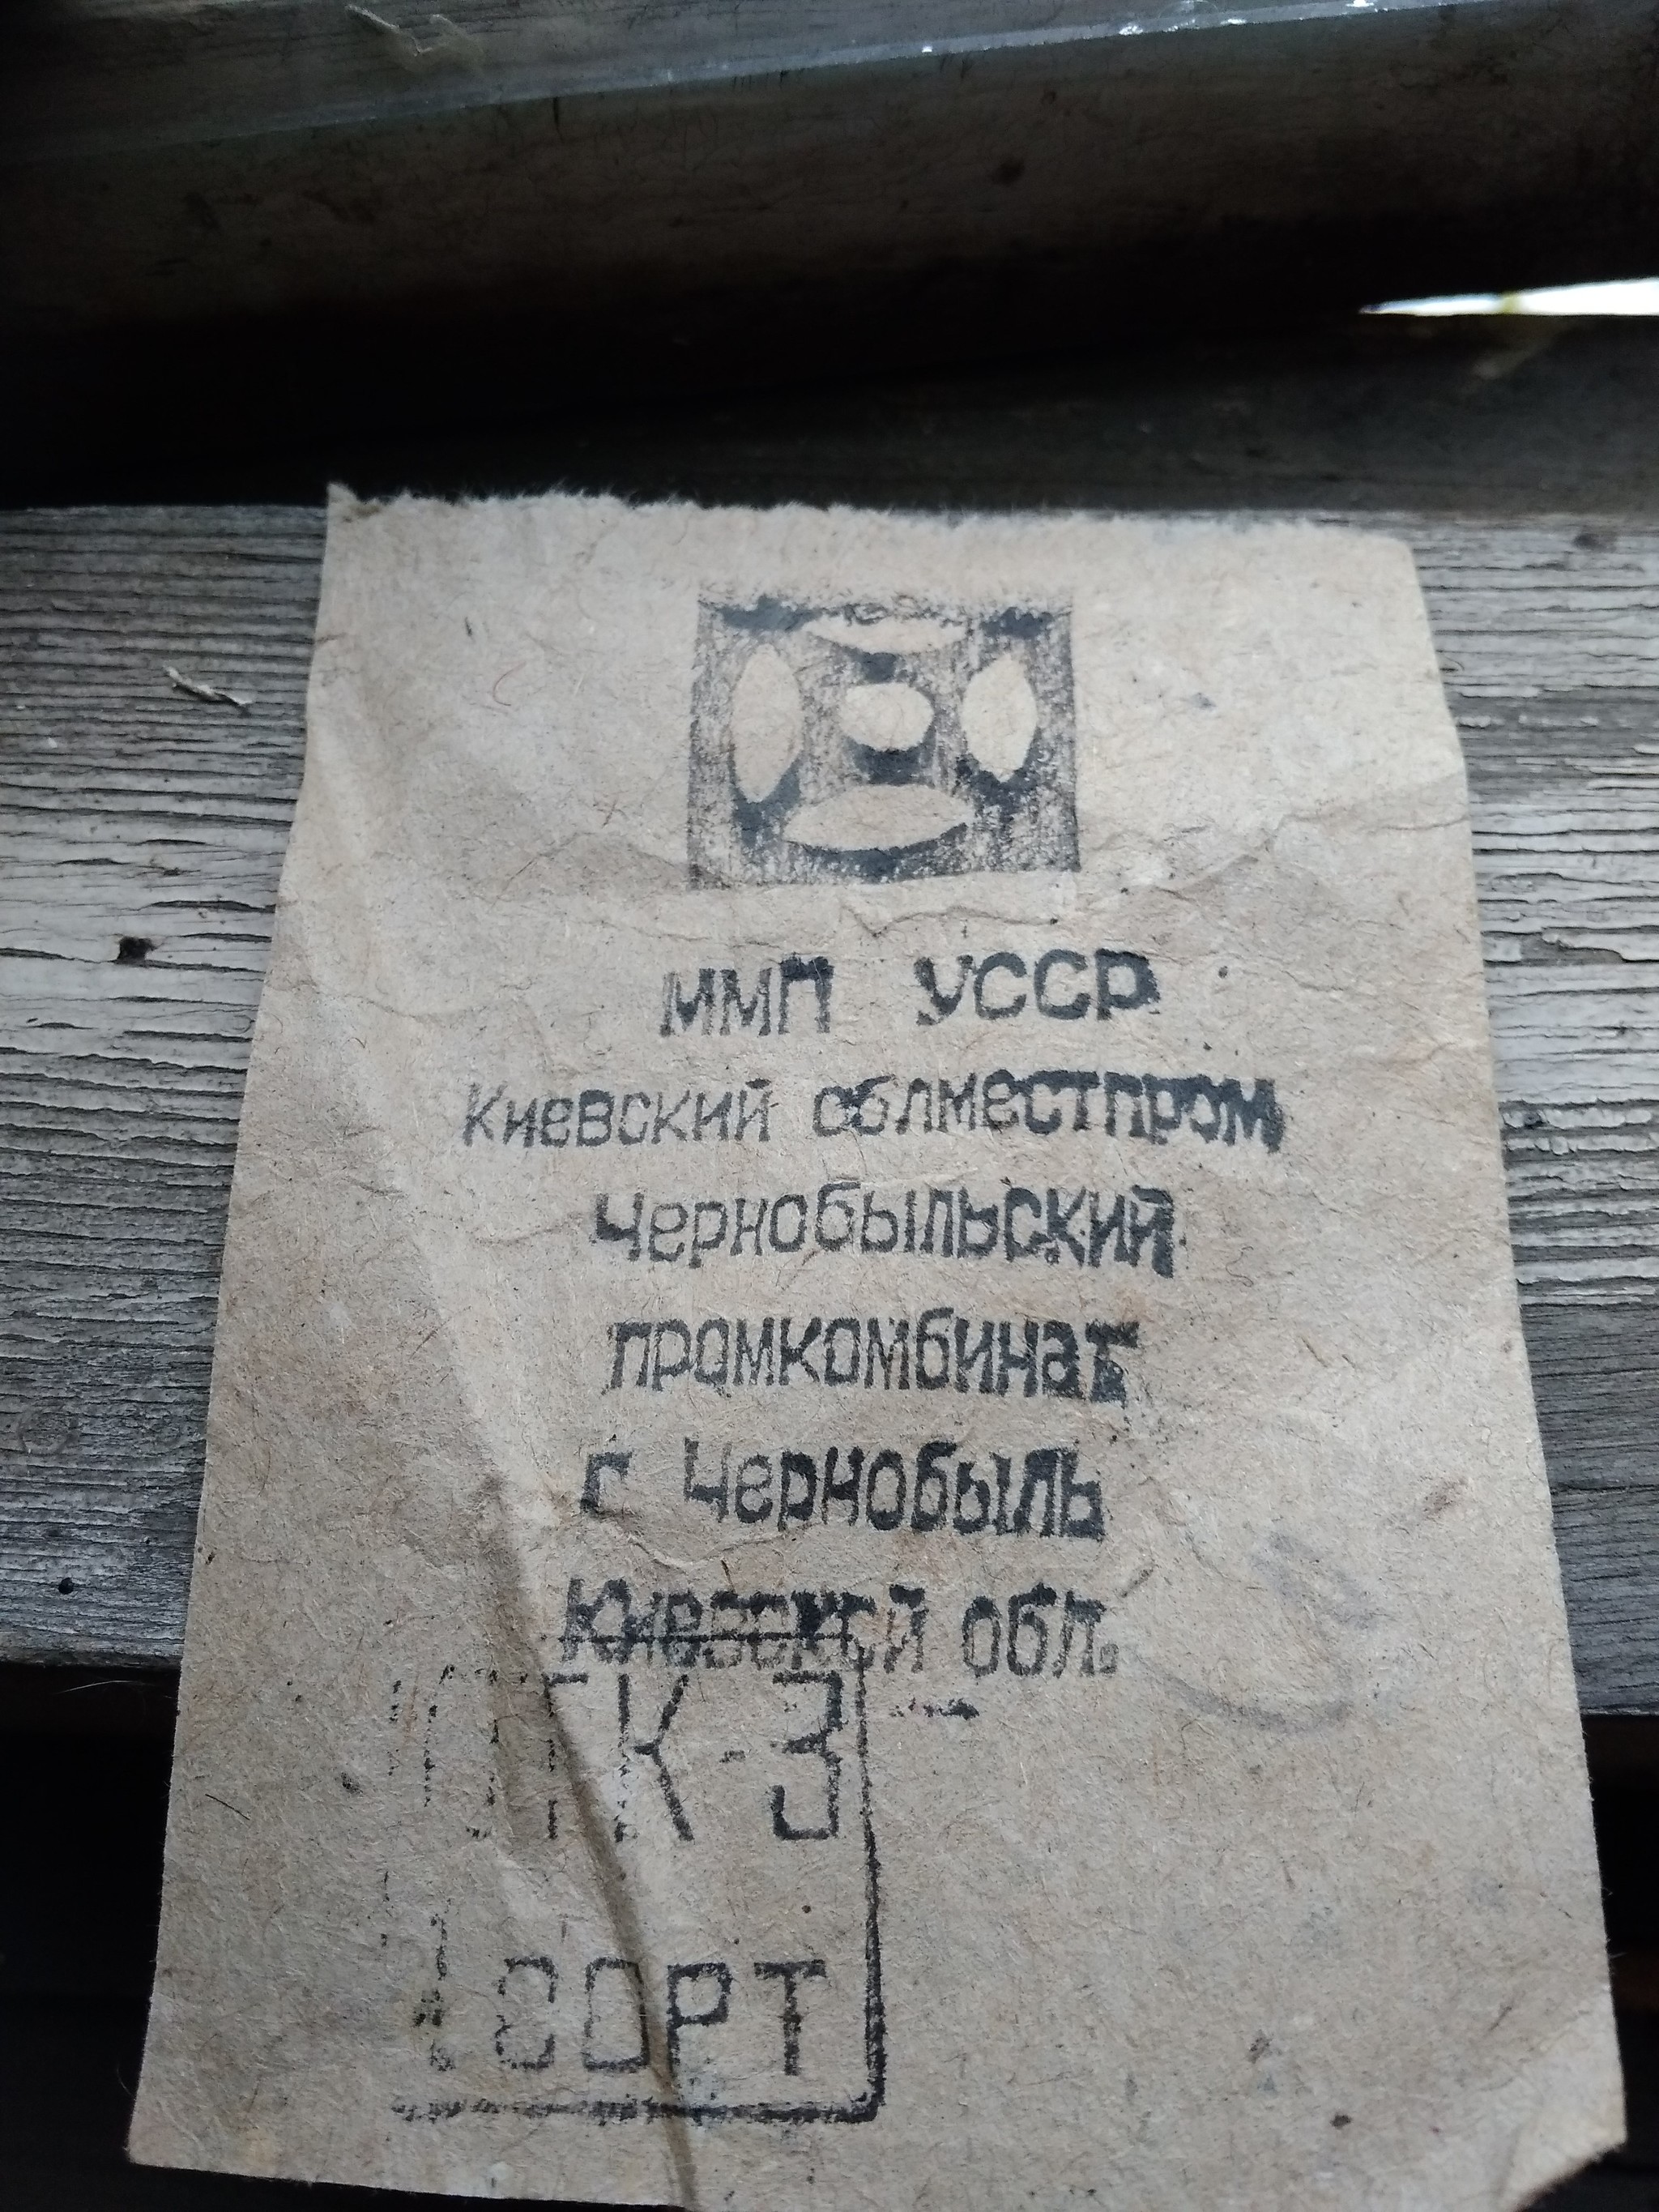 ММП УССР
Киевский облместпром
Чернобыльский
промкомбинат
г Чернобыль
Киевской обл.
ОТК-3
1 СОРТ